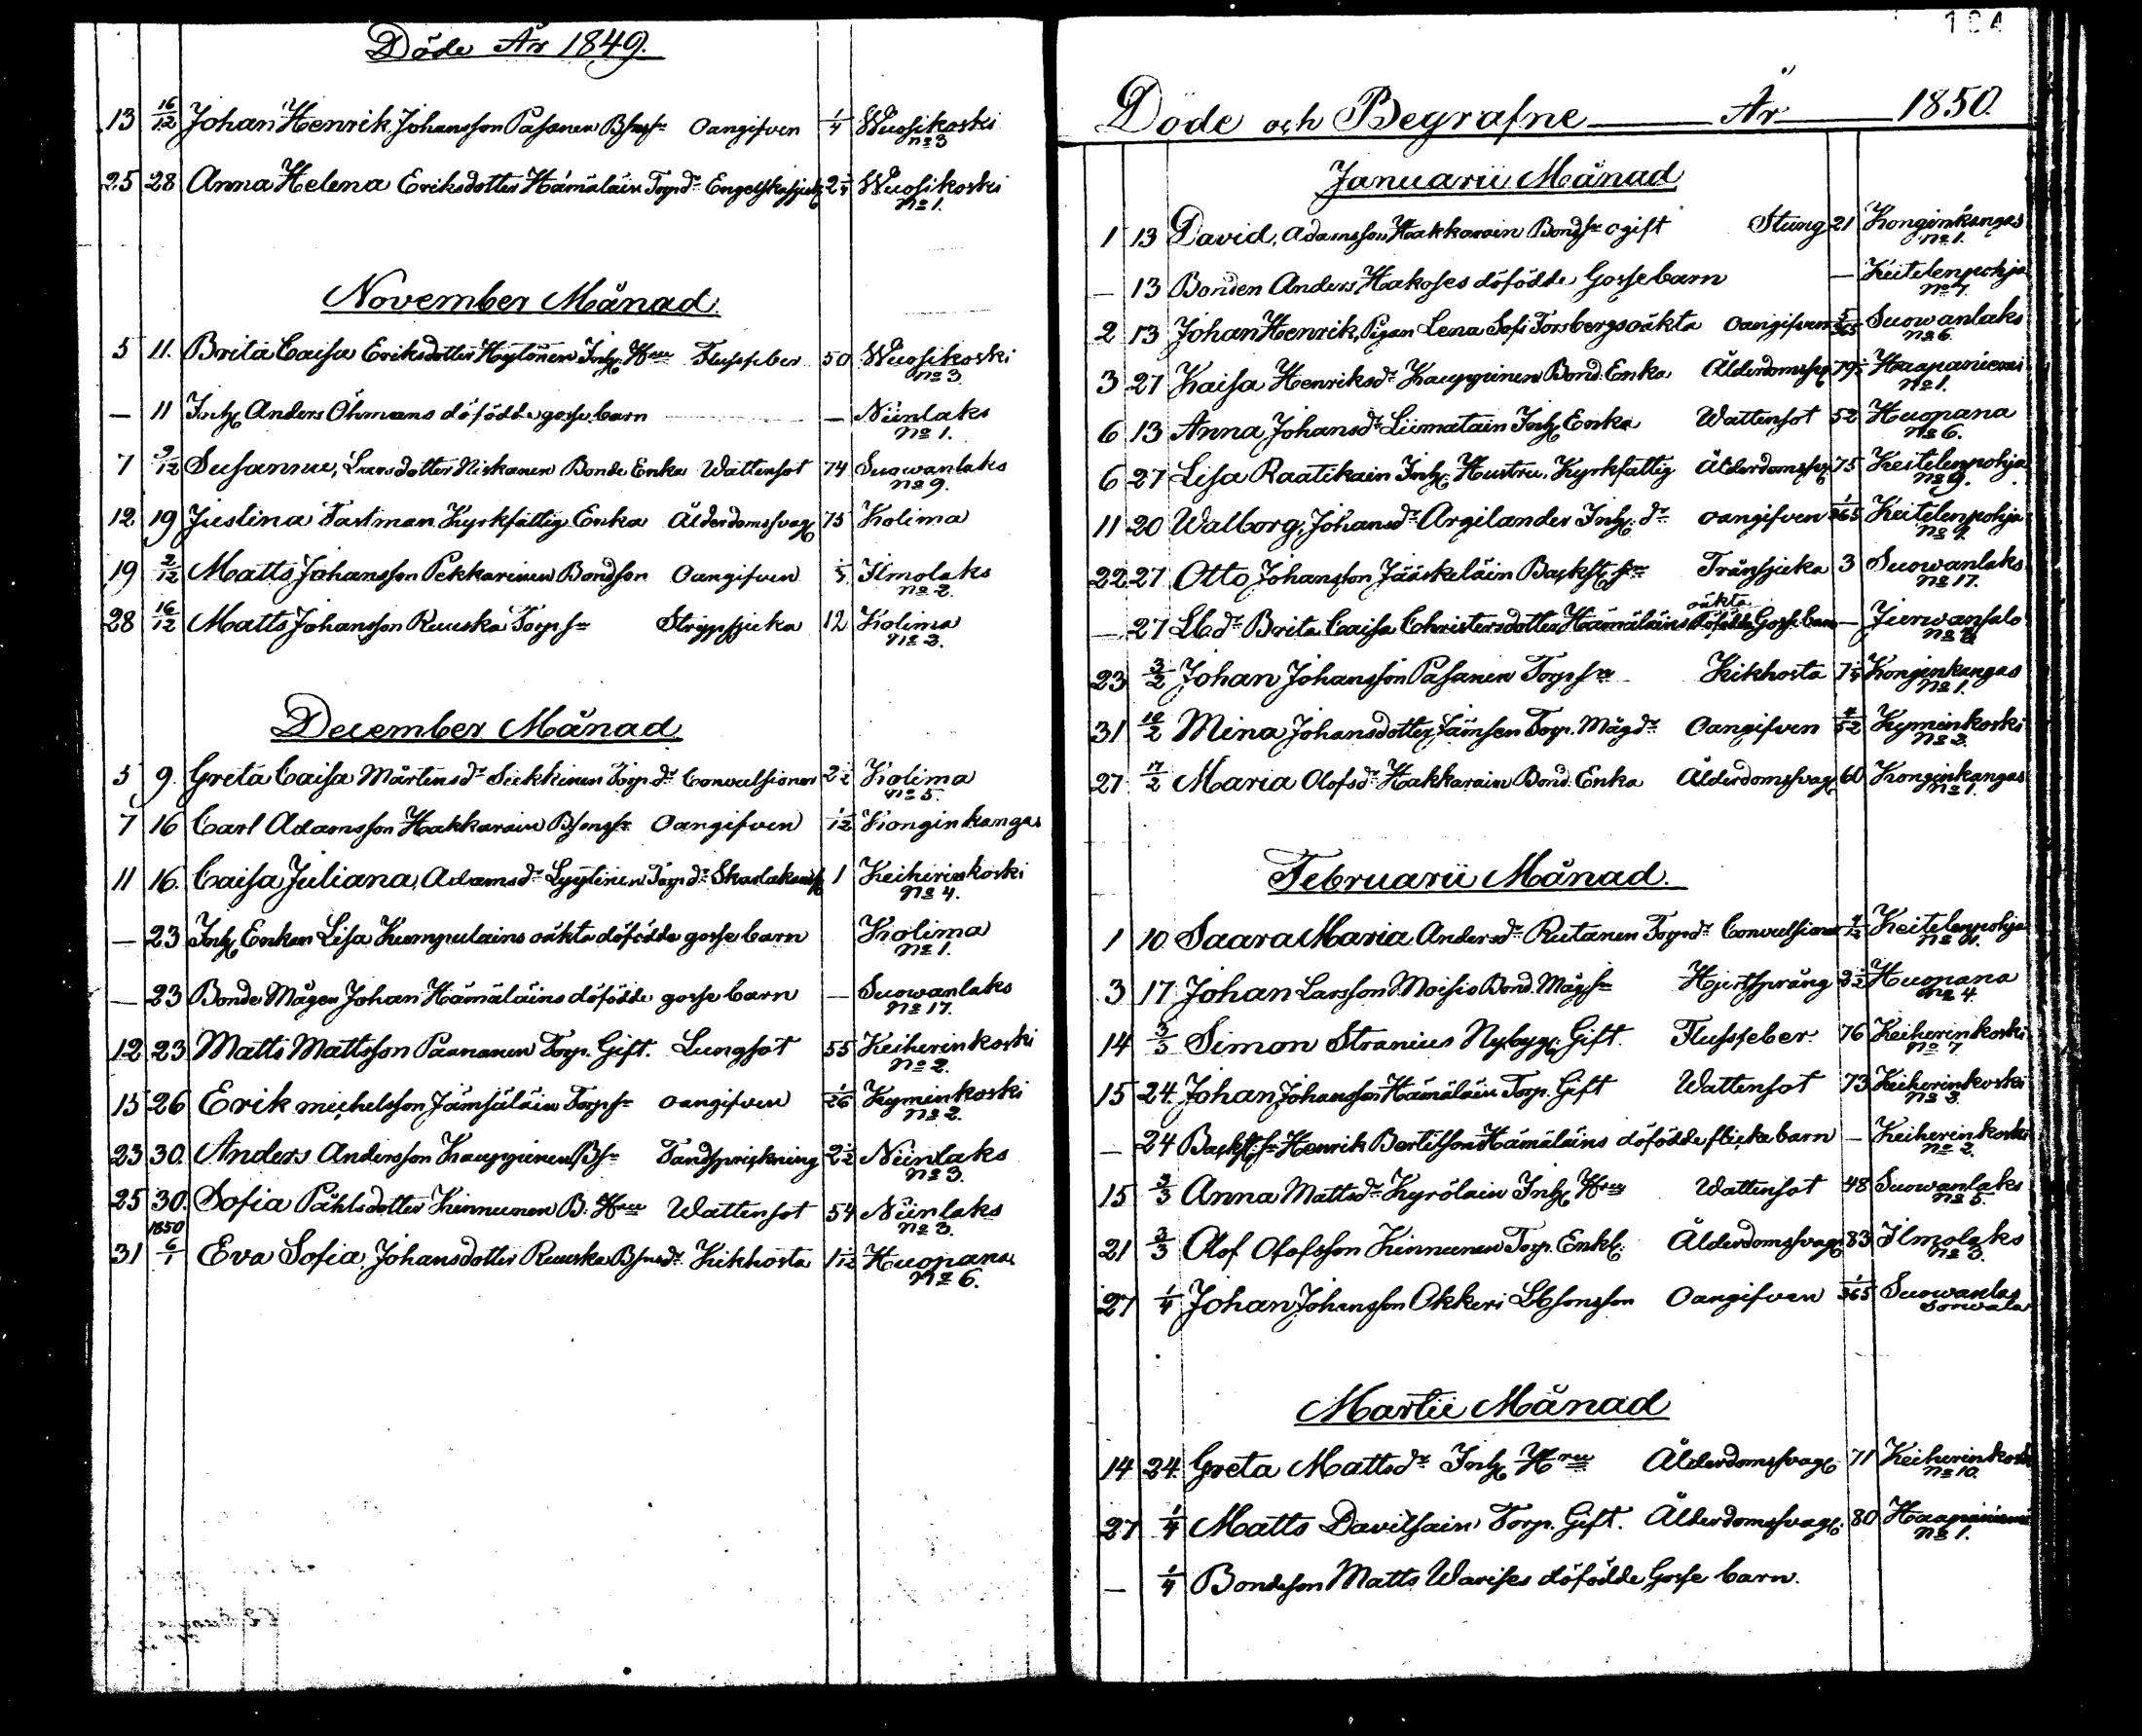 Döde År 1849.
13 16/12 Johan Henrik Johansson Pasanen Bsmsn Oangifven 1/4 Wuosikoski
no 3
25 28 Anna Helena Eriksdotter Hämäläin Torp dr Engelskasjuk 2 1/4 Wuosikoski
no 1.
November Månad.
5 11. Brita Caisa Eriksdotter Hytönen Inh. Hru Flussfeber 50 Wuosikoski
no 3
— 11 Inh. Anders Öhmans döfödde gosse barn — Niinlaks
no 1.
7 9/12 Susanna, Larsdotter Niskanen Bonde Enka Wattensot 74 Suowanlaks
no 9.
12 19 Justina Fastman Kyrkfattig Enka Ålderdomssvag 75 Kolima
19 2/12 Matts Johansson Pekkarinen Bondson Oangifven Ilmolaks
no 2.
28 16/12 Matts Johansson Ruuska Torp sn Strypsjuka 12 Kolima
no 3.
December Månad
5 9. Greta Caisa Mårtensdr Siekkinen Torp. dr Convulsioner 2 1/2 Kolima
no 5.
7 16 Carl Adamsson Hakkarain Oangifven 1/12 Konginkangas
11 16. Caisa Juliana, Adamsdr Lyytinen Torp dr Skarlakansf 1 Keiherinkoski
no 4.
— 23 Inh. Enkan Lisa Kumpulains oäkta döfödde gosse barn Kolima
no 1.
— 23 Bonde Mågen Johan Hämäläins döfödde gosse barn — Suowanlaks
no 17.
12 23 Matts Mattsson Paananen Torp. Gift. Lungsot 55 Keiherinkoski
no 2.
15 26 Erik michelsson Jämsäläin Torp sn oangifven 1/26 Kyminkoski
no 2.
23 30. Anders Andersson Kauppinen Bsn Tandsprickning 2 1/2 Niinlaks
no 3.
25 30. Sofia Påhlsdotter Kinnunen B. Hru Wattensot 54 Niinlaks
no 3.
1850
31 6/1 Eva Sofia Johansdotter Ruuska Bsmsdr Kikhosta 1 1/12 Huopana
no 6.
104
Döde och Begrafne År 1850.
Januarii Månad
1 13 David, Adamsson Hakkarain Bondsn ogift Stung 21 Konginkangas
no 1.
— 13 Bonden Anders Hakoses döfödde Gosse barn — Keitelenpohja
no 7.
2 13 Johan Henrik, Pigan Lena Sofi Forsbergs oäkta Oangifven 5/365 Suowanlaks
no 6.
3 27 Kaisa Henriksdr Kauppinen Bond. Enka Ålderdomssv 79 1/2 Haapaniemi
no 1.
6 13 Anna Johansdr Liimatain Inh. Enka Wattensot 52 Huopana
no 6.
6 27 Lisa Raatikain Inh. Hustru. Kyrkfattig Ålderdomssv 75 Keitelenpohja
no 9.
11 20 Walborg, Johansdr Argilander Inh. dr oangifven 1/365 Keitelenpohja
no 9.
22 27 Otto Johansson Jääskeläin Backst. sn Trånsjuka 3 Suowanlaks
no 17.
oäkta
— 27 Lbdr Brita Caisa Christersdotter Hämäläins döfödde Gosse barn — Jurwansalo
23 3/2 Johan Johansson Pasanen Torp sn Kikhosta 7 1/4 Konginkangas
no 1.
31 10/2 Mina Johansdotter Jämsen Torp. Mågdr Oangifven 4/52 Kyminkoski
no 3.
27 17/2 Maria Olofsdr Hakkarain Bond. Enka Ålderdomssvag 60 Konginkangas
no 1.
Februarii Månad.
1 10 Saara Maria Andersdr Rutanen Torpdr Convulsioner Keitelenpohja
3 17 Johan Larsson Moisio Bond. Mågsn Hjertsprång 3 1/2 Huopana
no 4
14 3/3 Simon Stranius Nybygg. Gift. Flussfeber. 76 Keiherinkoski
no 7
15 24. Johan Johansson Hämäläin Torp. Gift Wattensot 73 Keiherinkoski
no 3.
— 24 Backst. sn Henrik Bertilsson Hämäläins döfödde flicka barn — Keiherinkoski
no 2.
15 3/3 Anna Mattsdr Kyröläin Inh. Hru Wattensot 48 Suowanlaks
no 5.
21 3/3 Olof Olofsson Kinnunen Torp. Enkl. Ålderdomssvag. 83 Ilmolaks
no 3.
27 1/4 Johan Johansson Okkeri Lbsonsson Oangifven 1/365 Suowanlax
Sorwala
Martii Månad
14 24 Greta Mattsdr Inh. Hru Ålderdomssvag. 71 Keiherinkoski
no 10.
27 1/4 Matts Davitsain Torp. Gift. Ålderdomssvag. 80 Haapaniemi
no 1.
— 1/4 Bondeson Matts Warises döfödde Gosse barn.